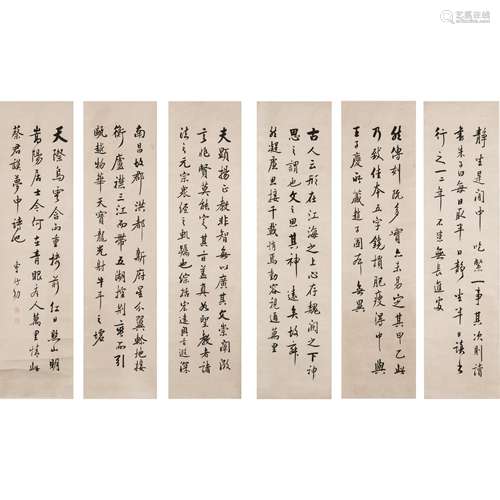 艺狐在线
artfoxlive.com
靜坐是閑中喫緊其次則讀
書朱子曰每日取半日靜坐半日讀書
行之一二年不患無長進處
然傳刻既多實亦未易定其甲乙此
乃致佳本五字鑱損肥瘦得中與
王子慶所藏趙子固本無異
古人云形在江海之上心存魏闕之下神
思之謂也文之思其神遠矣故寂
然凝慮思接千載悄焉動容視通萬里
夫顯揚正教非智無以廣其文崇闡微
言非賢莫能定其旨蓋真如聖教者諸
法之元宗衆經之軌躅也綜括宏遠奧旨遐深
南昌故郡洪都新府星分翼軫地接
衡廬襟三江而帶五湖控蠻荊而引
甌越物華天寶龍光射牛斗之墟
天際烏雲含雨重樓前紅日照山明
嵩陽居士今何在青眼看人萬里情此
蔡君謨夢中詩也